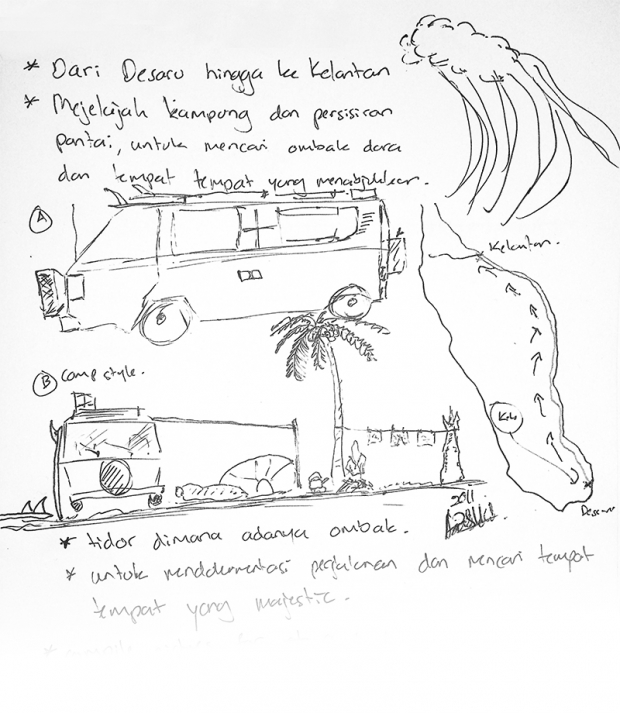 * Dari Desaru hingga ke Kelantan
* Mejelajah kampung dan persisiran
pantai, untuk mencari ombak dara
dan tempat tempat yang
A
Kelantan.
B camp style.
Desaru
2011
* tidor dimana adanya ombak.
* untuk mendokumentasi perjalanan dan mencari tempat
tempat yang majestic.